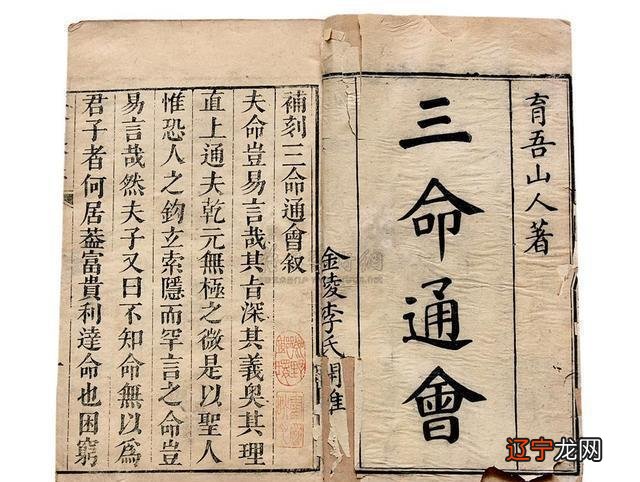 育吾山人著
三命通會
金陵李氏
補刻三命通會叙
夫命豈易言哉其旨深其義奥其理
直上通夫乾元無極之微是以聖人
惟恐人之鈎玄索隱而罕言之命豈
易言哉然夫子又曰不知命無以爲
君子者何居葢富貴利達命也困窮
辽宁龙网